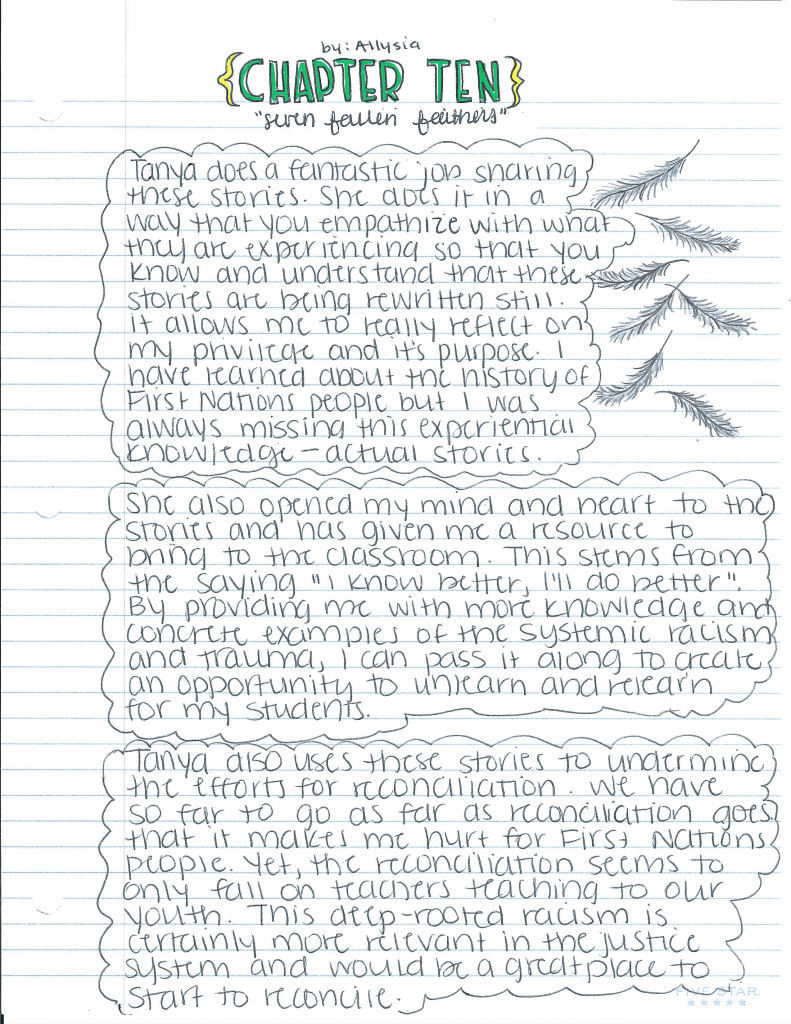 by: Allysia
{CHAPTER TEN}
"seven fallen feathers"
Tanya does a fantastic job sharing
these stories. She does it in a
way that you empathize with what
they are experiencing so that you
know and understand that these
stories are being rewritten still.
it allows me to really reflect on
my privilege and it's purpose. I
have learned about the history of
First Nations people but I was
always missing this experiential
knowledge – actual stories.
She also opened my mind and heart to the
stories and has given me a resource to
bring to the classroom. This stems from
the saying "I know better, I'll do better".
By providing me with more knowledge and
concrete examples of the systemic racism
and trauma, I can pass it along to create
an opportunity to unlearn and relearn
for my students.
Tanya also uses these stories to undermine
the efforts for reconciliation. We have
so far to go as far as reconciliation goes
that it makes me hurt for First Nations
people. Yet, the reconciliation seems to
only fall on teachers teaching to our
youth. This deep-rooted racism is
certainly more relevant in the justice
system and would be a great place to
start to reconcile.
FIVE STAR.